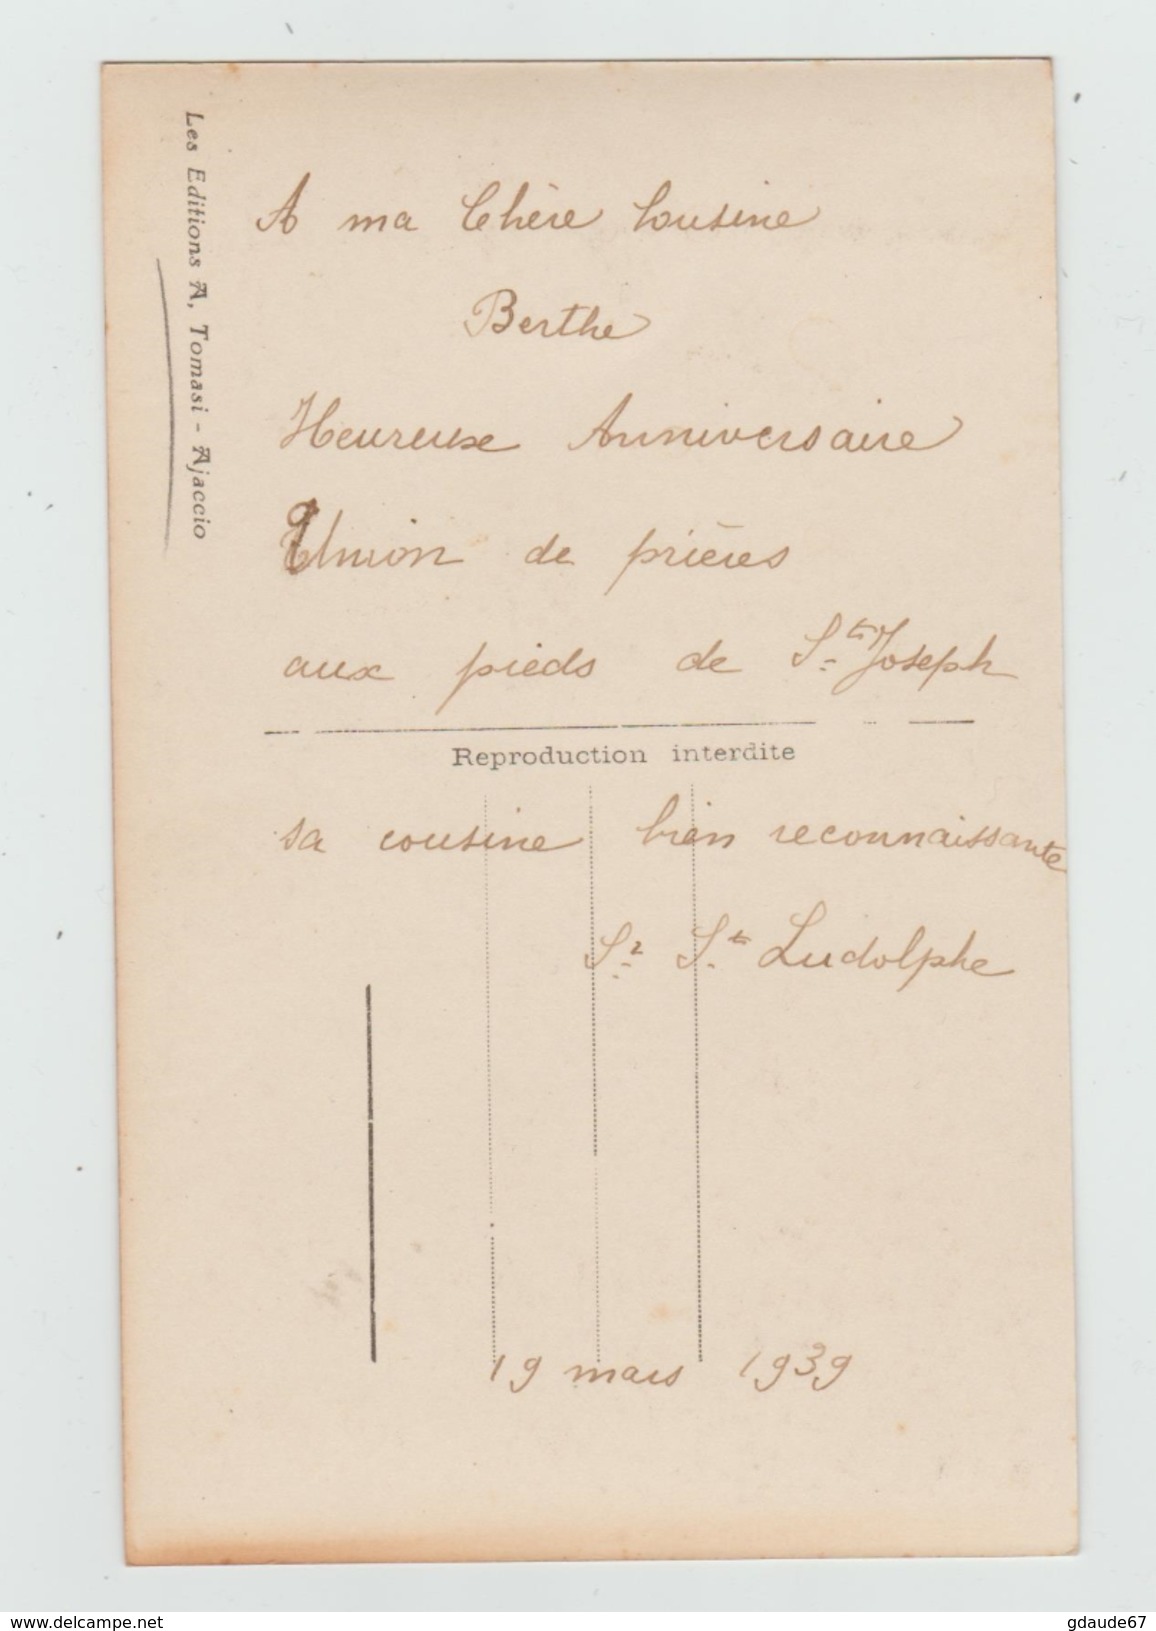 Les Editions A, Tomasi - Ajaccio
A ma Chère Cousine
Berthe
Heureuse Anniversaire
Union de prières
aux pieds de St Joseph
Reproduction interdite
sa cousine bien reconnaissante
Sr St Ludolphe
19 mars 1939
www.delcampe.net
gdaude67